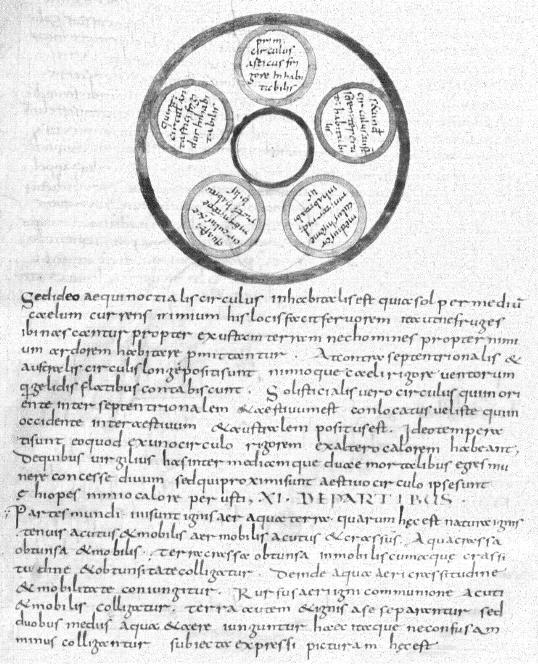 prim
circulus
articus fri
gore inhabi
tabilis
circulus
habitabi
lis
quint
circul an
tarticus fri
inhabi
tabilis
quart
bilis
medius
inhabi
lis
Sed ideo aequinoctialis circulus inhabitalis est quia sol per mediū
caelum currens nimium his locis facit feruorem ita ut nec fruges
ibi nascantur propter exustam terram nec homines propter nimi
um ardorem habitare pmittantur. At contra septentrionalis &
australis circulis longe positi sunt, nimioque caeli rigore uentorum
q; gelidis flatibus contabiscunt. Solistialis uero circulus qui in ori
ente inter septentrionalem & aestiuum est conlocatus uel iste qui in
occidente inter aestiuum & australem positus est. Ideo tempera
ti sunt, eo quod ex uno circulo rigorem ex altero calorem habeant,
De quibus uirgilius has inter mediamque duae mortalibus egris mu
nere concesse diuum sed qui proximi sunt aestiuo circulo ipse sunt
ęthiopes nimio calore perusti, XI. DE PARTIBUS.
Partes mundi iiii sunt ignis aer aqua terra. quarum hęc est natura ignis
tenuis acutus & mobilis aer mobilis acutus & crassus. Aqua crassa
obtunsa & mobilis. Terra crassa obtunsa inmobilis cumaque crassi
tudine & obtunsitate colligatur. Deinde aqua aeri crassitudine
& mobilitate coniungitur. Rursus aer igni communione acuti
& mobilis colligatur. Terra autem & ignis a se separantur sed
duobus mediis aqua & aere iunguntur haec itaque ne confusa m
minus colligantur subiecta expressi picturam hęc est